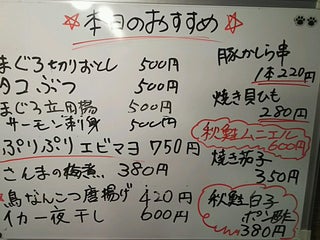 ☆本日のおすすめ☆
まぐろ切りおとし 500円
タコぶつ 500円
まぐろ立田揚 500円
サーモン刺身 500円
ぷりぷりエビマヨ 750円
さんまの梅煮 380円
鳥なんこつ唐揚げ 420円
イカ一夜干し 600円
豚かしら串
1本220円
焼き貝ひも
280円
秋鮭ムニエル
600円
焼き茄子
350円
秋鮭白子
ポン酢
380円